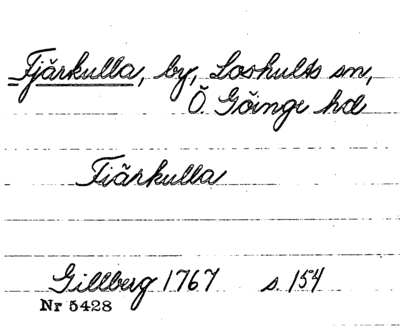 Fjärkulla, by, Loshults sn,
Ö. Göinge hd
Fiärkulla
Gillberg 1767 s. 154
Nr 5428